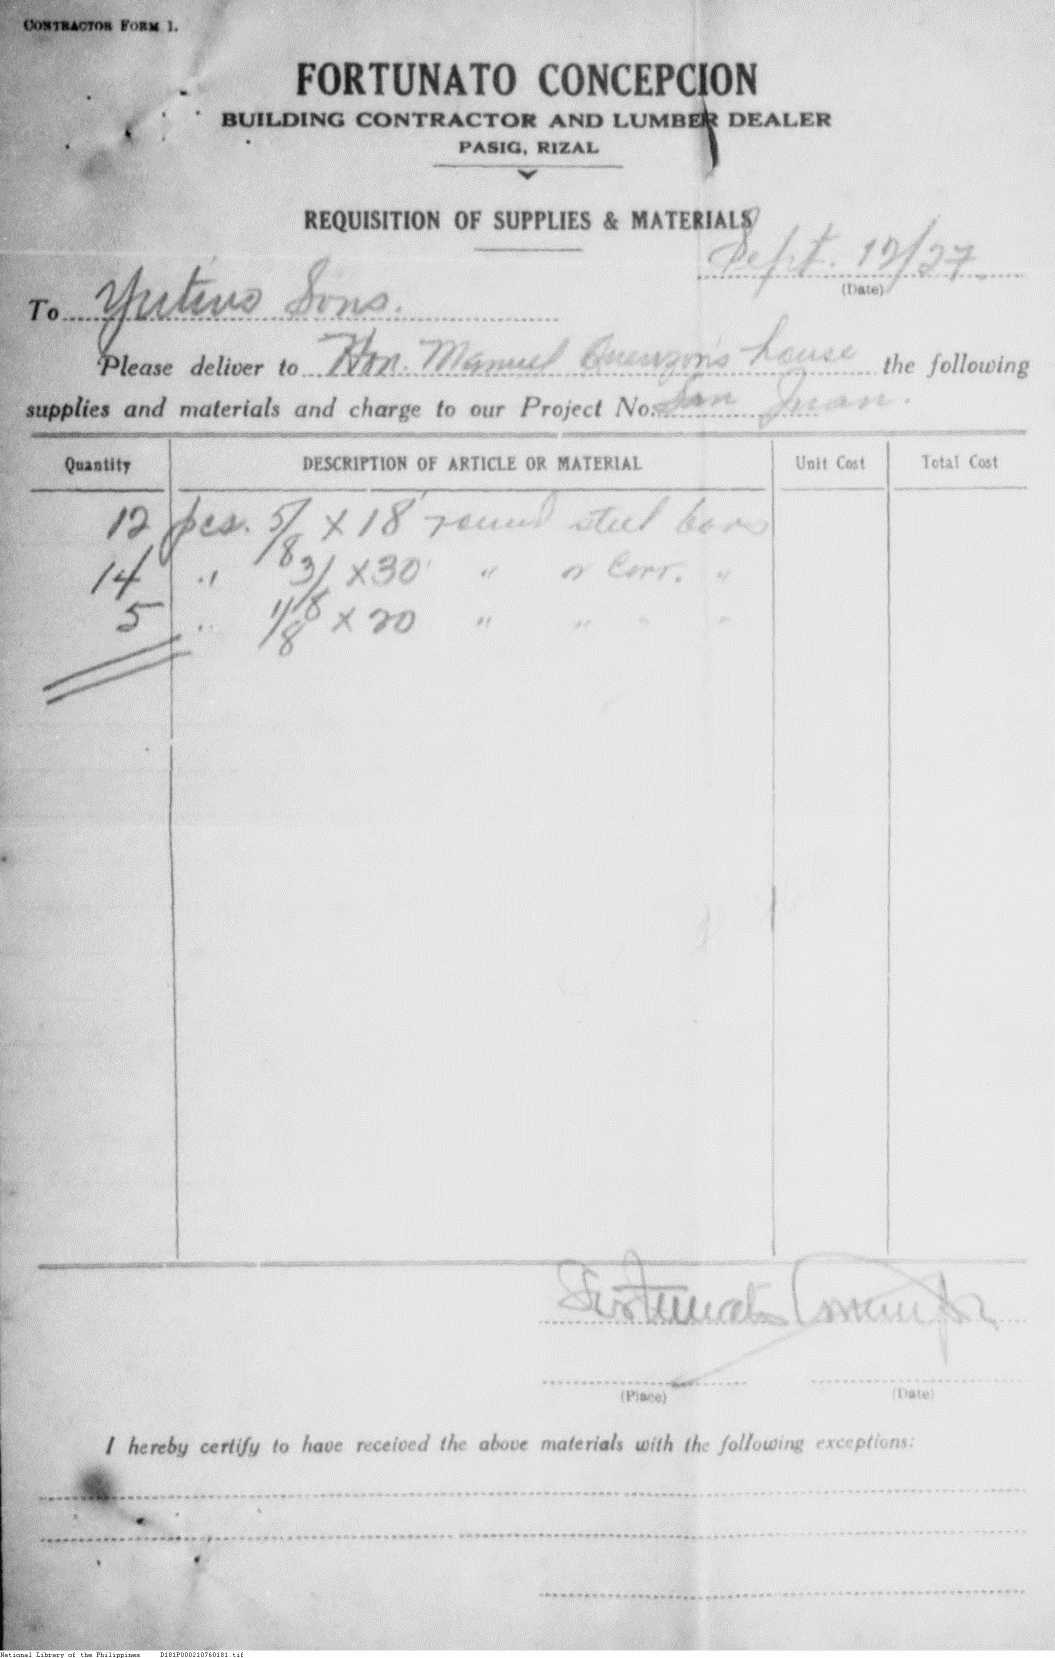 CONTRACTOR FORM 1.
FORTUNATO CONCEPCION
BUILDING CONTRACTOR AND LUMBER DEALER
PASIG, RIZAL
REQUISITION OF SUPPLIES & MATERIALS
Sept. 12/27.
(Date)
To Yutivo Sons.
Please deliver to Hon. Manuel Quezon's house the following
supplies and materials and charge to our Project No. San Juan.
Quantity DESCRIPTION OF ARTICLE OR MATERIAL Unit Cost Total Cost
12 pcs. 5/8 x 18' round steel bars
14 " 3/8 x 30' " or Corr. "
5 " 1/8 x 20 " " " "
Fortunato Concepcion
(Place) (Date)
I hereby certify to have received the above materials with the following exceptions:
National Library of the Philippines D181P000210760181.tif